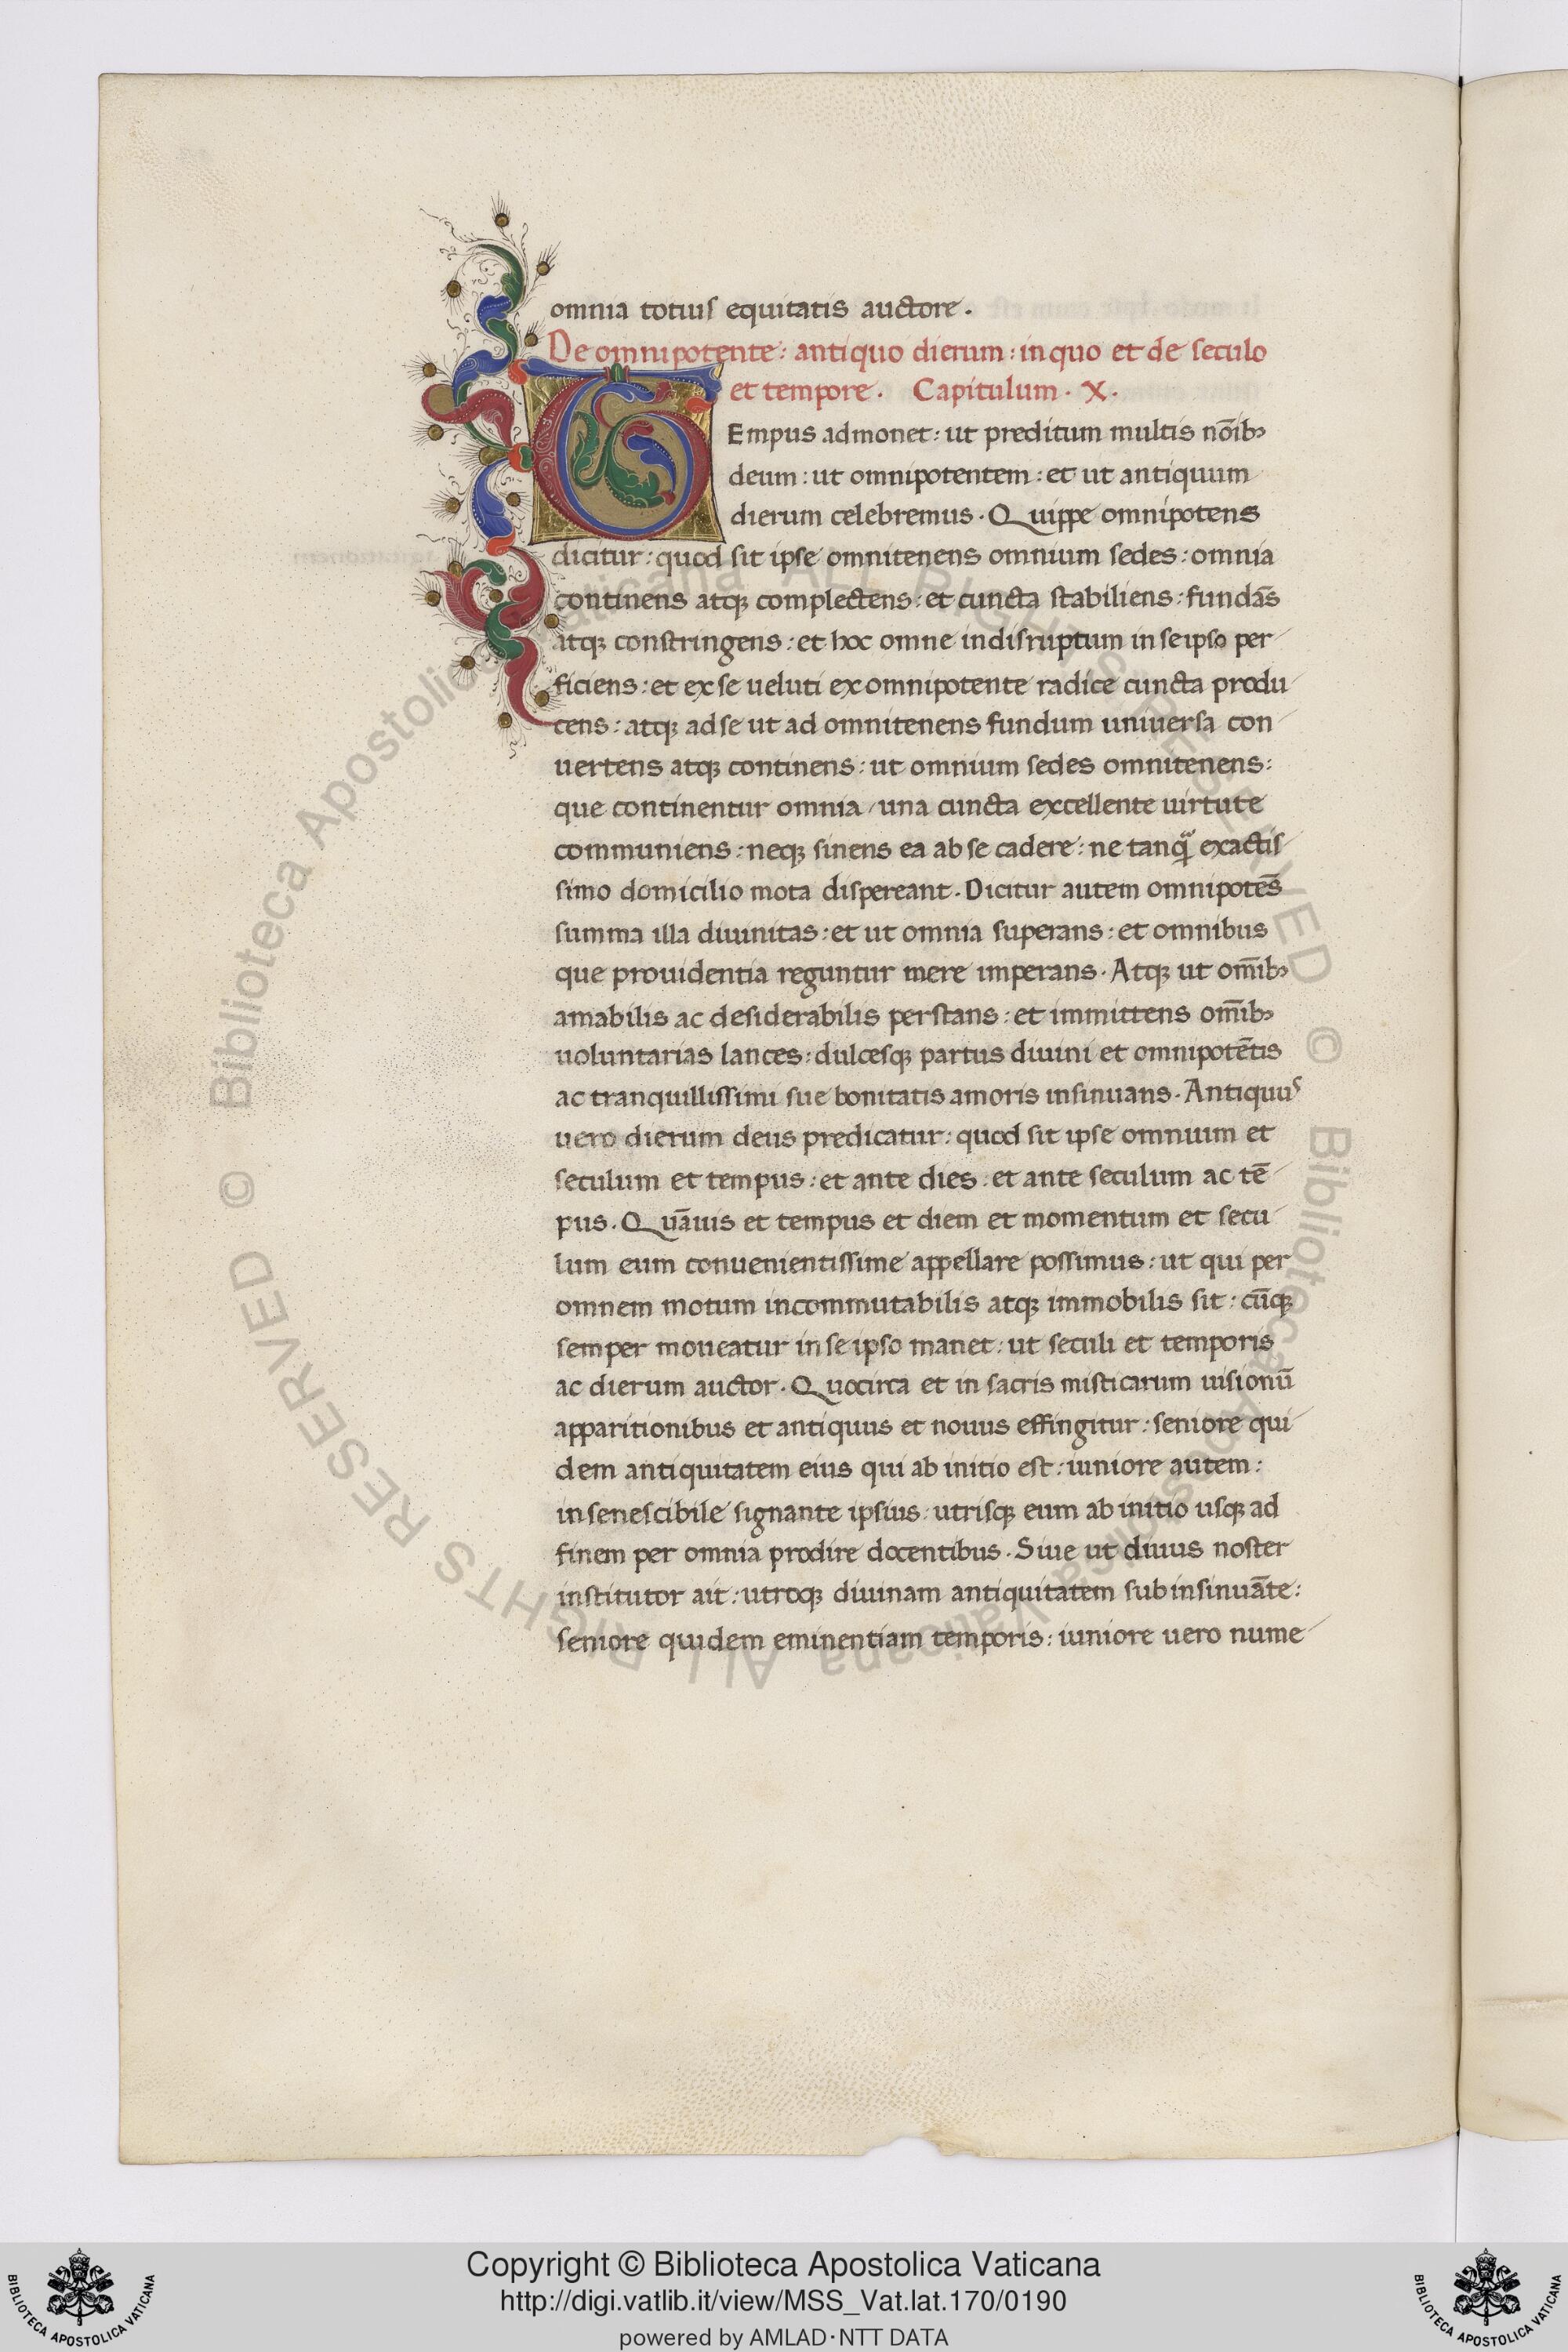 omnia totius equitatis auctore.
De omnipotente: antiquo dierum: in quo et de seculo
et tempore. Capitulum. X.
TEmpus admonet: ut preditum multis nōibꝫ
deum: ut omnipotentem: et ut antiquum
dierum celebremus. Quippe omnipotens
dicitur: quod sit ipse omnitenens omnium sedes: omnia
continens atqꝫ complectens: et cuncta stabiliens: fundās
atqꝫ constringens: et hoc omne indisruptum in seipso per
ficiens: et ex se ueluti ex omnipotente radice cuncta produ
cens: atqꝫ ad se ut ad omnitenens fundum uniuersa con
uertens atqꝫ continens: ut omnium sedes omnitenens:
que continentur omnia / una cuncta excellente uirtute
communiens: neqꝫ sinens ea ab se cadere: ne tanqꝫ̈ exactis
simo domicilio mota dispereant. Dicitur autem omnipotēs
summa illa diuinitas: et ut omnia superans: et omnibus
que prouidentia reguntur mere imperans. Atqꝫ ut om̄ibꝫ
amabilis ac desiderabilis perstans: et immittens om̄ibꝫ
uoluntarias lances: dulcesqꝫ partus diuini et omnipotētis
ac tranquillissimi sue bonitatis amoris insinuans. Antiquus
uero dierum deus predicatur: quod sit ipse omnium et
seculum et tempus: et ante dies: et ante seculum ac tē
pus. Quāuis et tempus et diem et momentum et secu
lum eum conuenientissime appellare possimus: ut qui per
omnem motum incommutabilis atqꝫ immobilis sit: cūqꝫ
semper moueatur in se ipso manet: ut seculi et temporis
ac dierum auctor. Quocirca et in sacris misticarum uisionū
apparitionibus et antiquus et nouus effingitur: seniore qui
dem antiquitatem eius qui ab initio est: iuniore autem:
insenescibile signante ipsius: utrisqꝫ eum ab initio usqꝫ ad
finem per omnia prodire docentibus. Siue ut diuus noster
institutor ait: utroqꝫ diuinam antiquitatem subinsinuāte:
seniore quidem eminentiam temporis: iuniore uero nume
© Biblioteca Apostolica Vaticana ALL RIGHTS RESERVED © Biblioteca Apostolica Vaticana ALL RIGHTS RESERVED
Copyright © Biblioteca Apostolica Vaticana
http://digi.vatlib.it/view/MSS_Vat.lat.170/0190
powered by AMLAD·NTT DATA
BIBLIOTECA APOSTOLICA VATICANA
BIBLIOTECA APOSTOLICA VATICANA